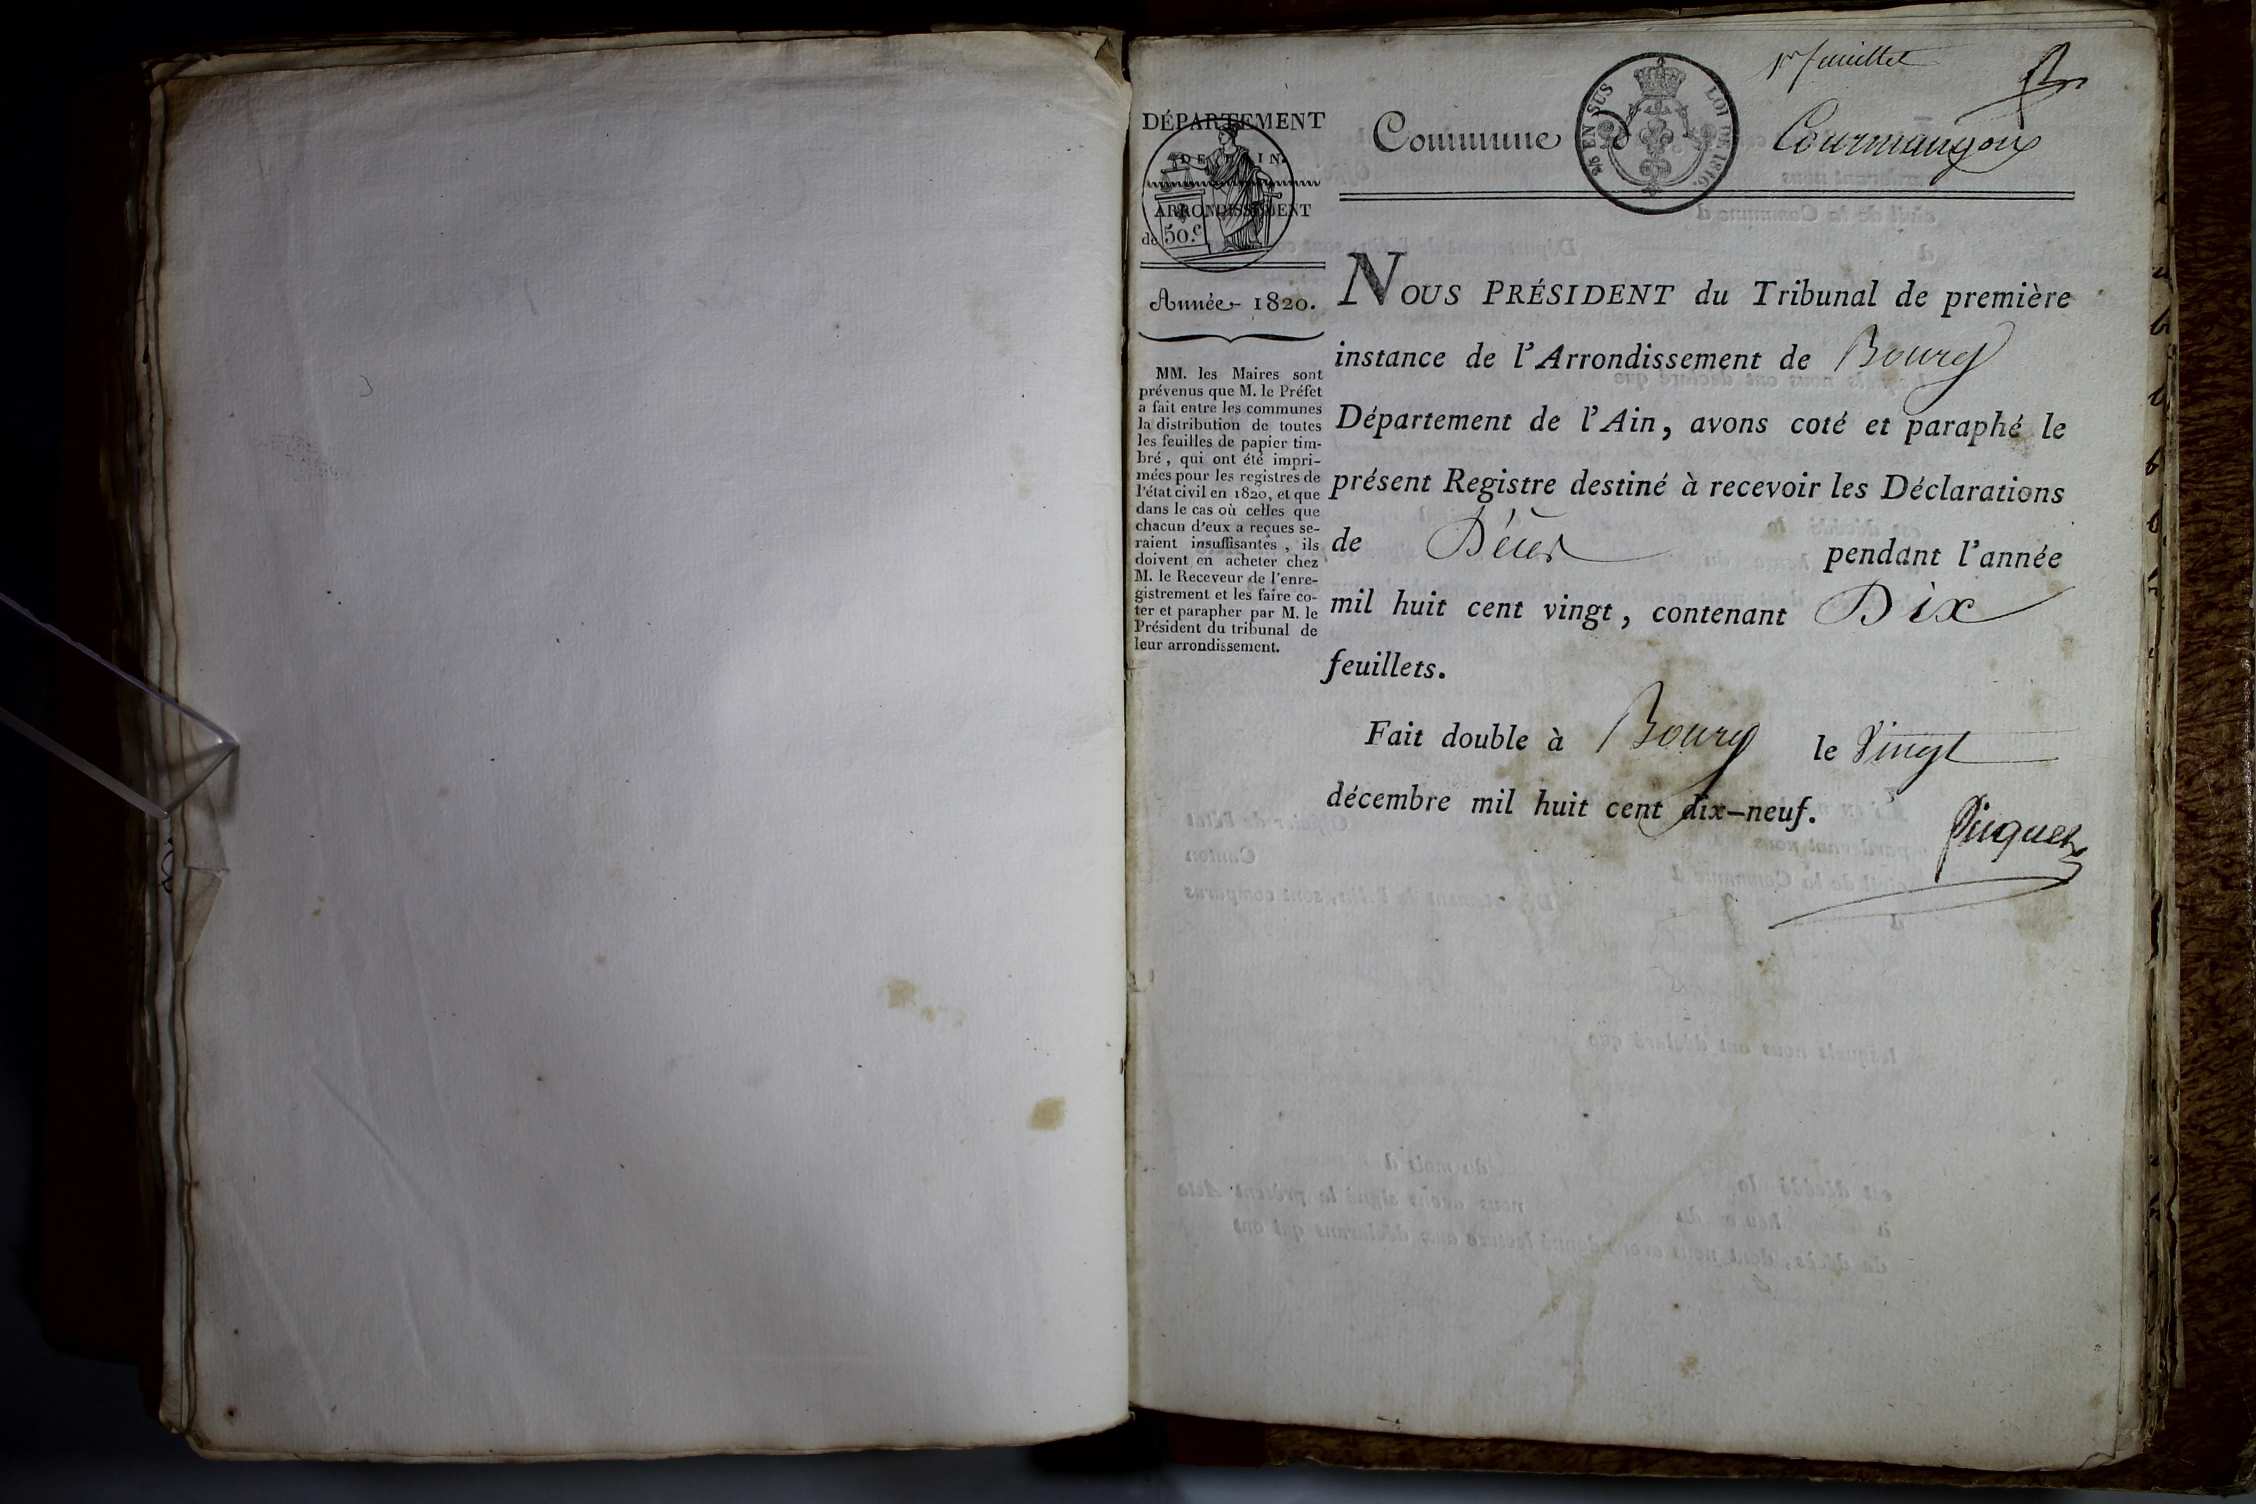 1er feuillet
DÉPARTEMENT
DE L'AIN.
ARRONDISSEMENT
de
50.c
Année 1820.
MM. les Maires sont
prévenus que M. le Préfet
a fait entre les communes
la distribution de toutes
les feuilles de papier tim-
bré, qui ont été impri-
mées pour les registres de
l'état civil en 1820, et que
dans le cas où celles que
chacun d'eux a reçues se-
raient insuffisantes, ils
doivent en acheter chez
M. le Receveur de l'enre-
gistrement et les faire co-
ter et parapher par M. le
Président du tribunal de
leur arrondissement.
Commune d Courmangoux
EN SUS LOI DE 1816.
NOUS PRÉSIDENT du Tribunal de première
instance de l'Arrondissement de Bourg
Département de l'Ain, avons coté et paraphé le
présent Registre destiné à recevoir les Déclarations
de Décès pendant l'année
mil huit cent vingt, contenant Dix
feuillets.
Fait double à Bourg le Vingt
décembre mil huit cent dix-neuf.
Picquet